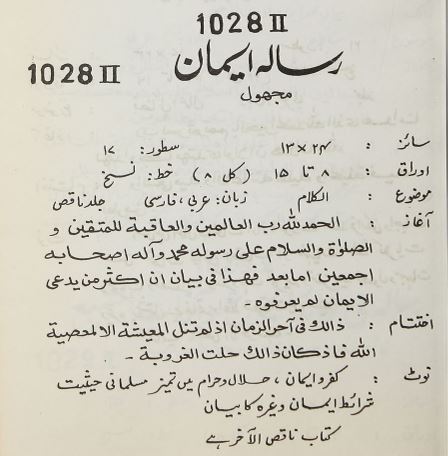 1028 II
رسالہ ایمان
1028 II
مجہول
سائز : ۲۴ × ۱۳ سطور: ۱۷
اوراق : ۸ تا ۱۵ (کل ۸) خط: نسخ
موضوع : الکلام زبان: عربی، فارسی جلد ناقص
آغاز : الحمدللہ رب العالمین والعاقبۃ للمتقین و
الصلوٰۃ والسلام علی رسولہ محمد وآلہ اصحابہ
اجمعین امابعد فھذا فی بیان ان اکثر من یدعی
الایمان لم یعرفوہ -
اختتام : ذالك فی آخر الزمان اذ لم تنل المعیشۃ الا لمعصیۃ
اللہ فاذ کان ذالك حلت الغروبۃ -
نوٹ : کفر و ایمان، حلال و حرام میں تمیز مسلمانی حیثیت
شرائط ایمان وغیرہ کا بیان
کتاب ناقص الآخر ہے